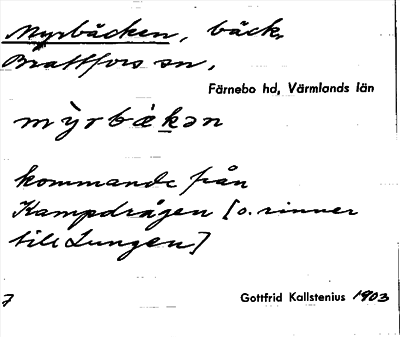 Myrbäcken, bäck,
Brattfors sn,
Färnebo hd, Värmlands län
mỳrbè̱kən
kommande från
Kampdrågen [o. rinner
till Lungen]
7
Gottfrid Kallstenius 1903